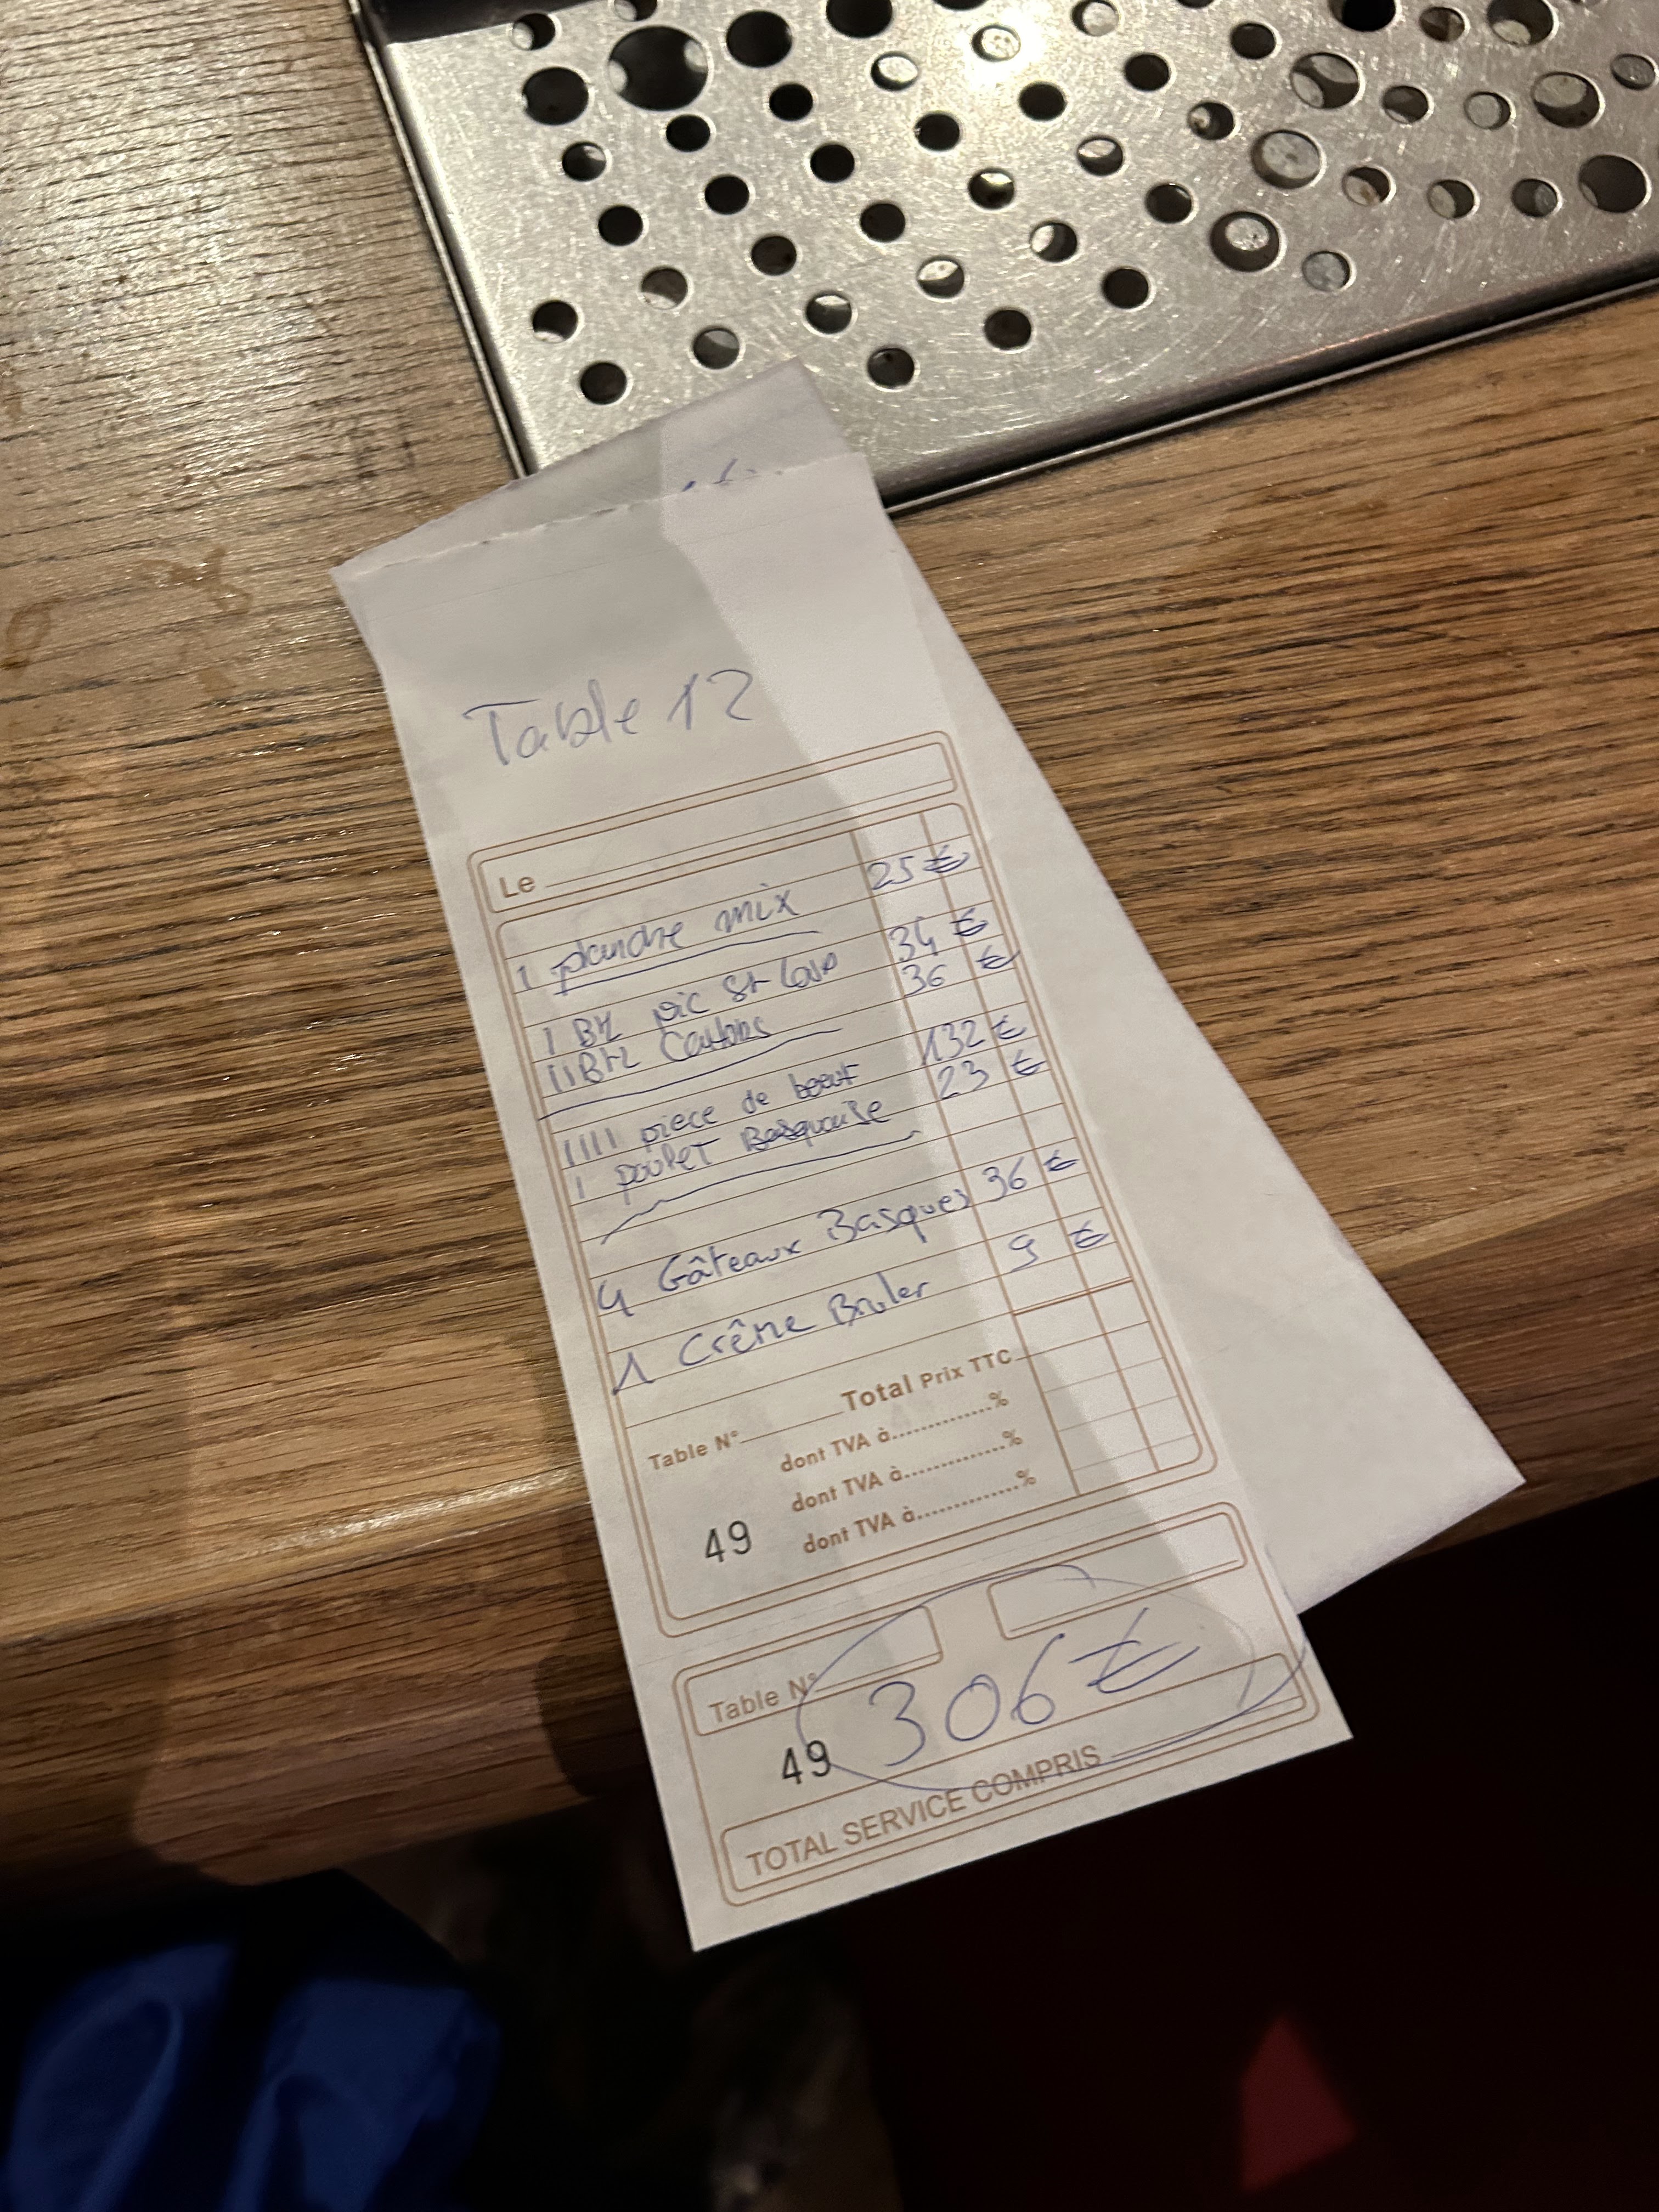 Table 12
Le
1 planche mix 25 €
1 Btl pic St Loup 34 €
11 Btl 36 €
1111 piece de boeuf 132 €
1 poulet Basquaise 23 €
4 Gâteaux Basques 36 €
1 Crême Bruler 9 €
Total Prix TTC
Table N°
dont TVA à............%
dont TVA à............%
49 dont TVA à............%
Table N°
49 306 €
TOTAL SERVICE COMPRIS